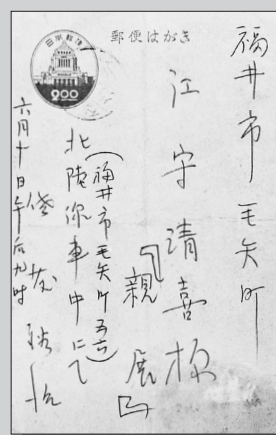 郵便はがき
日本郵便
2.00
福井市毛矢町
江守清喜様
親展
(福井市毛矢町五六)
北陸線車中にて
六月十日午后九時